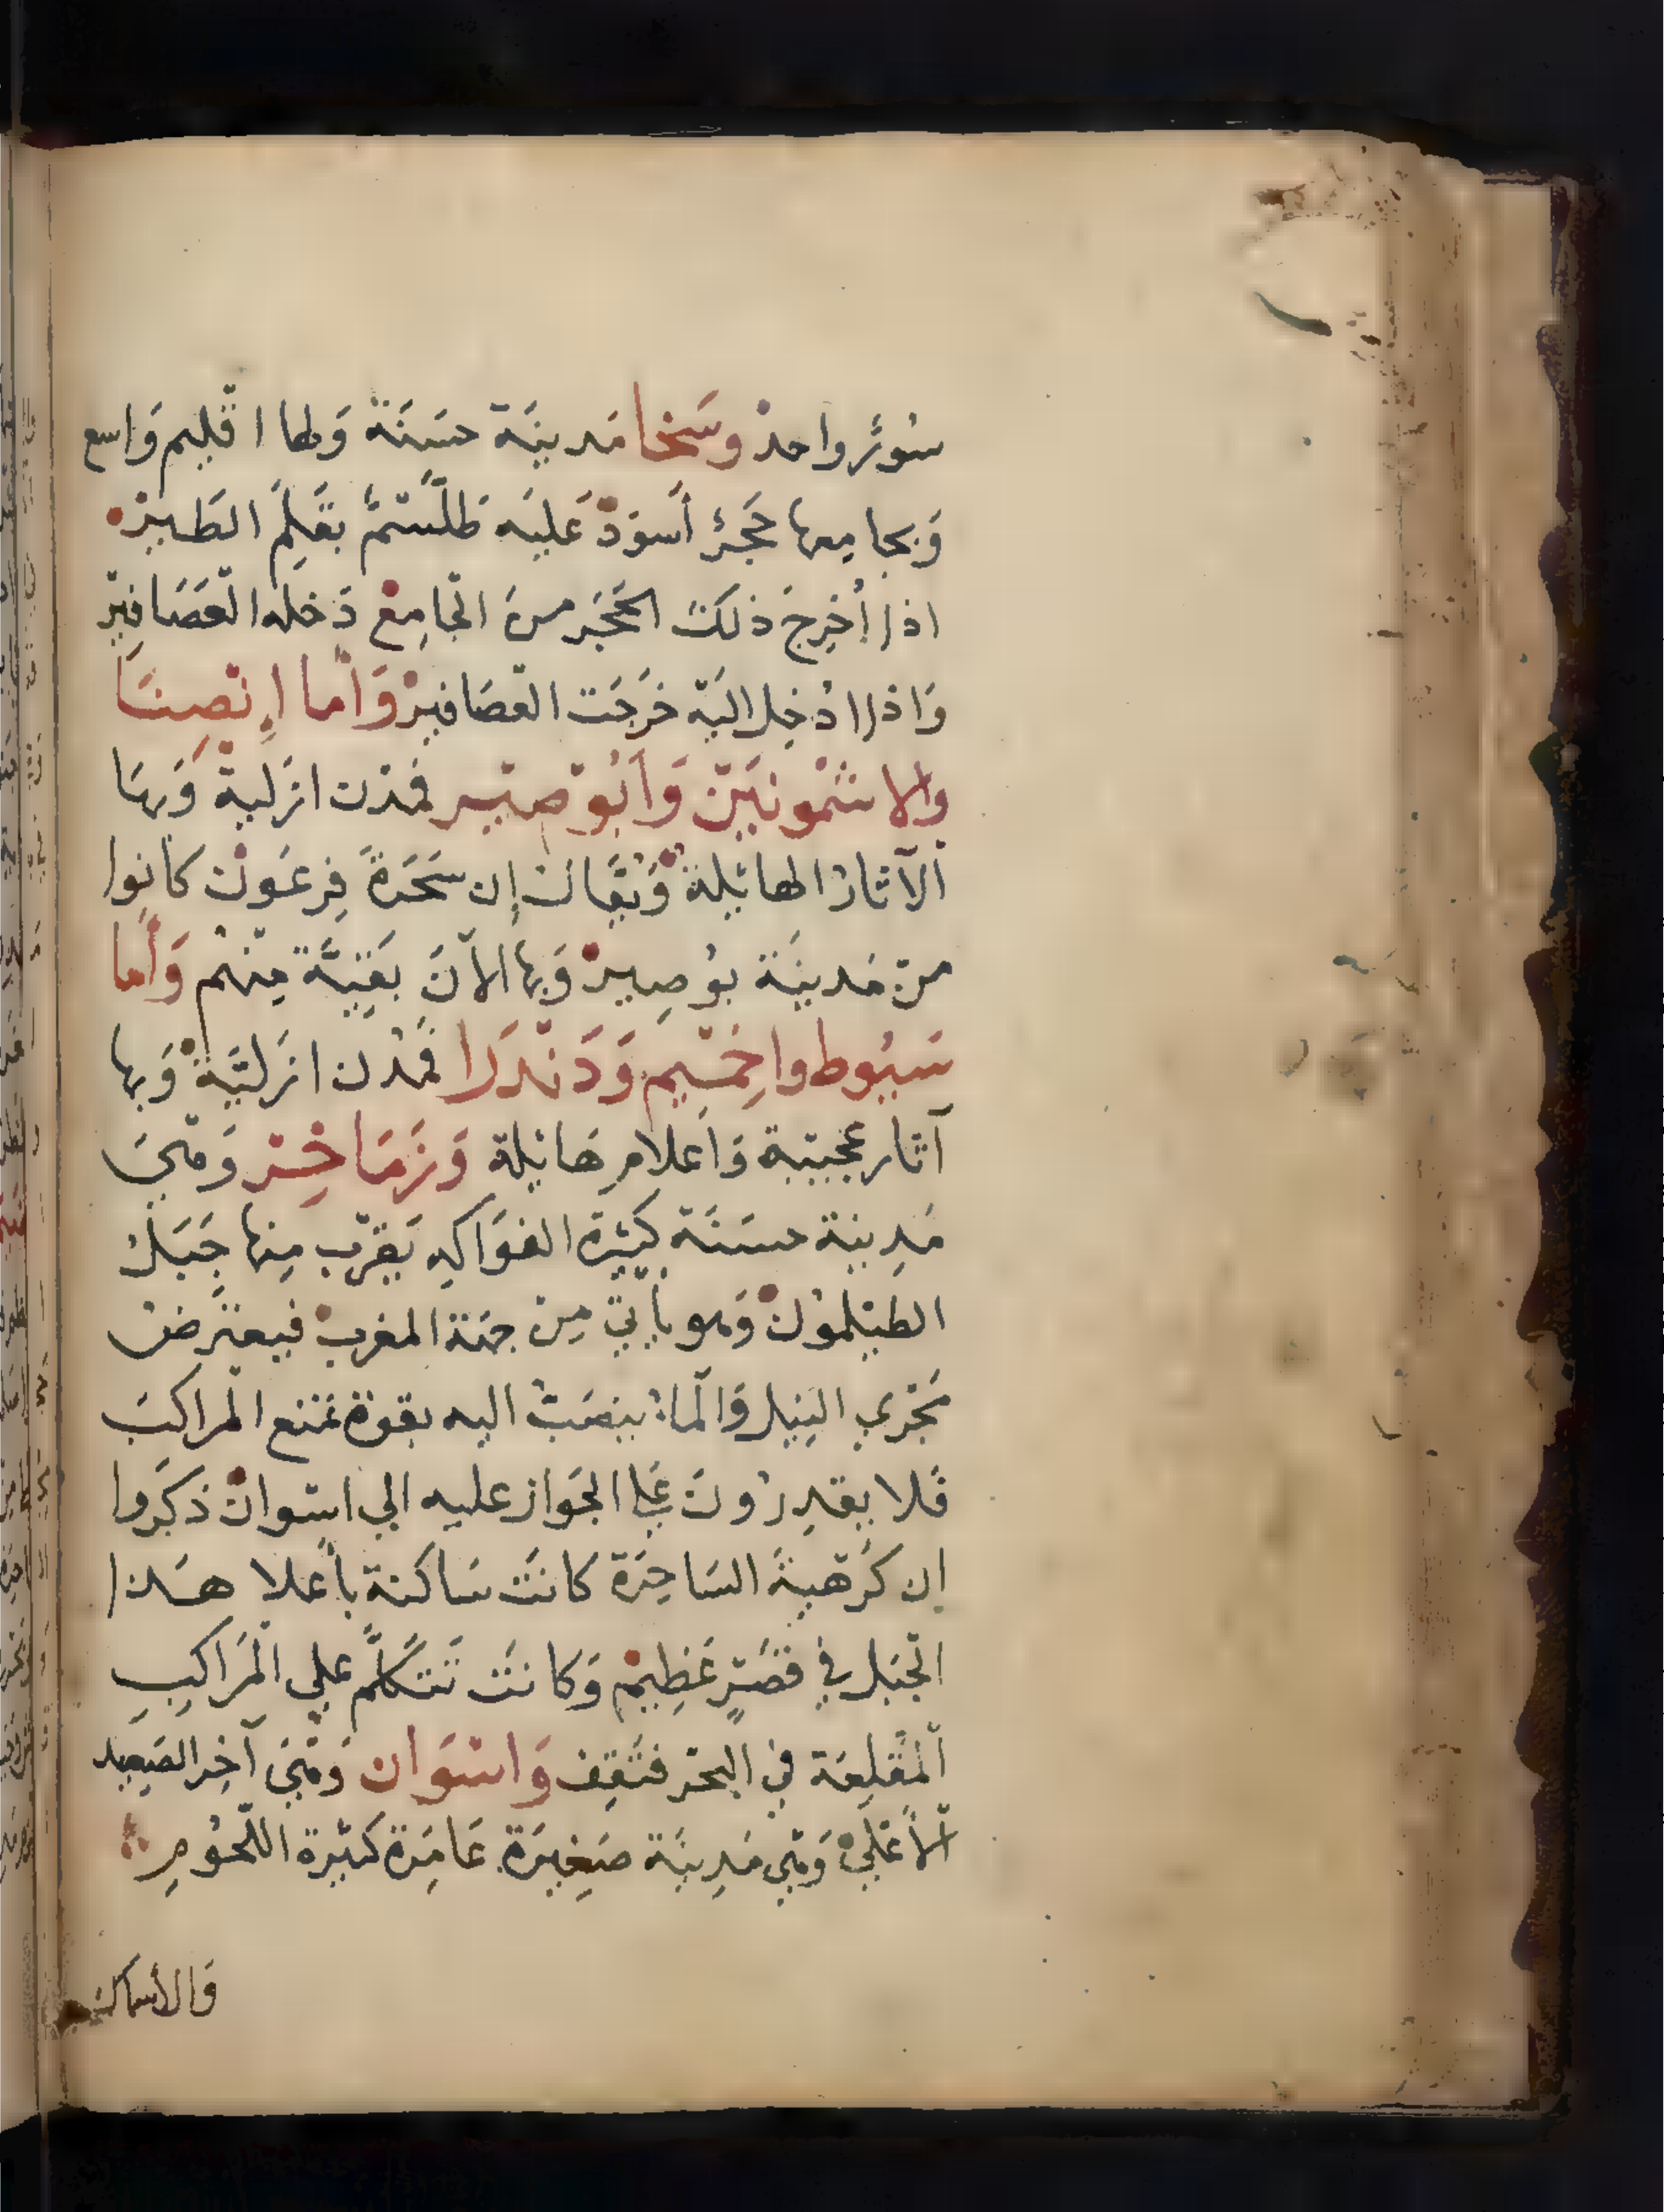 سُورٌ واحدْ وسَخا مَدينَة حسَنَة وَلها اقْليم وَاسع
وَبجامِعها حَجَرٌ أَسوَدْ عَليْه طَلَّسْمٌ بقَلِمَ الطَيرْ
اذا أُخرِجَ ذلكَ الحَجَر منَ الْجامِعْ دَخله العَصَافيْر
وَاذا ادْخِل اليَهْ خَرجَت العصَافيرْ وَأَما اِنْصِنَا
والاشْمُونَيْن وَابُوْصيْر فمُدْن ازَليةْ وَبهَا
الآثارْ الهائِلةْ وَيُقَالْ إن سَحَرَةَ فِرعَوْن كانوا
منْ مَدينَة بُوصِيرْ وَبها الآنَ بَقيَّة مِنْهُم وَأَما
سَيُوط واخِمْيم وَدَنْدَرَا فمُدْن ازَليَّةْ وَبها
آثار عجيْبة وَاعلامِ هَائلة وَزَمَاخِرْ وَهْيَ
مَدِينة حسَنَة كثِيْرة الفوَاكِهِ يَقرُب مِنها جَبَلْ
الطيْلمُونْ وَهو يأتي مِنْ جهَة المغربْ فيعترضْ
مَجْري النِيل وَالْماءْ ينصَبْ اليه بقوة تمنع الْمراكبْ
فَلا يقدِرُونَ عَلي الجَواز عليه الي اسْوانْ ذكَروا
إن كَرْهيةَ السَاحِرَة كانَتْ سَاكنة بأَعلا هَذا
الْجبَل في قصْرٍ عَظِيمْ وَكانَتْ تَتكلَّم علي المْرَاكبِ
اَلْمقْلِعَة في البحْر فتَقِف وَاسْوَان وَهْيَ آخِر الصَعِيد
الْأعْليْ وَهي مَدِينَة صَغِيرَة عَامِرَة كثيْرة اللّحُومِ
وَالأسماك